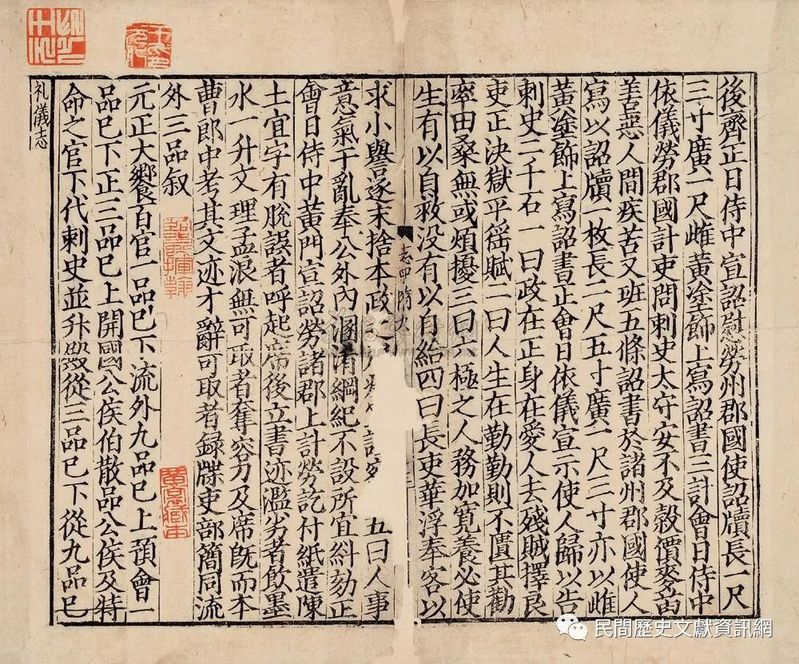 後齊正日侍中宣詔慰勞州郡國使詔牘長一尺
三寸廣一尺雌黃塗飾上寫詔書三計會日侍中
依儀勞郡國計吏問刺史太守安不及穀價麥苗
善惡人間疾苦又班五條詔書於諸州郡國使人
寫以詔牘一枚長二尺五寸廣一尺三寸亦以雌
黃塗飾上寫詔書正會日依儀宣示使人歸以告
刺史二千石一曰政在正身在愛人去殘賊擇良
吏正決獄平徭賦二曰人生在勤勤則不匱其勸
率田桑無或煩擾三曰六極之人務加寬養必使
生有以自救没有以自給四曰長吏華浮奉客以
志四
求小譽逐末捨本政 五曰人事
意氣干亂奉公外內溷淆綱紀不設所宜糾劾正
會日侍中黃門宣詔勞諸郡上計勞訖付紙遣陳
土宜字有脫誤者呼起席後立書迹濫劣者飲墨
水一升文理孟浪無可取者奪容刀及席旣而本
曹郎中考其文迹才辭可取者録牒吏部簡同流
外三品叙
元正大饗百官一品已下流外九品已上預會一
品已下正三品已上開國公侯伯散品公侯及特
命之官下代刺史並升殿從三品已下從九品已
礼儀志
民間歷史文獻資訊網